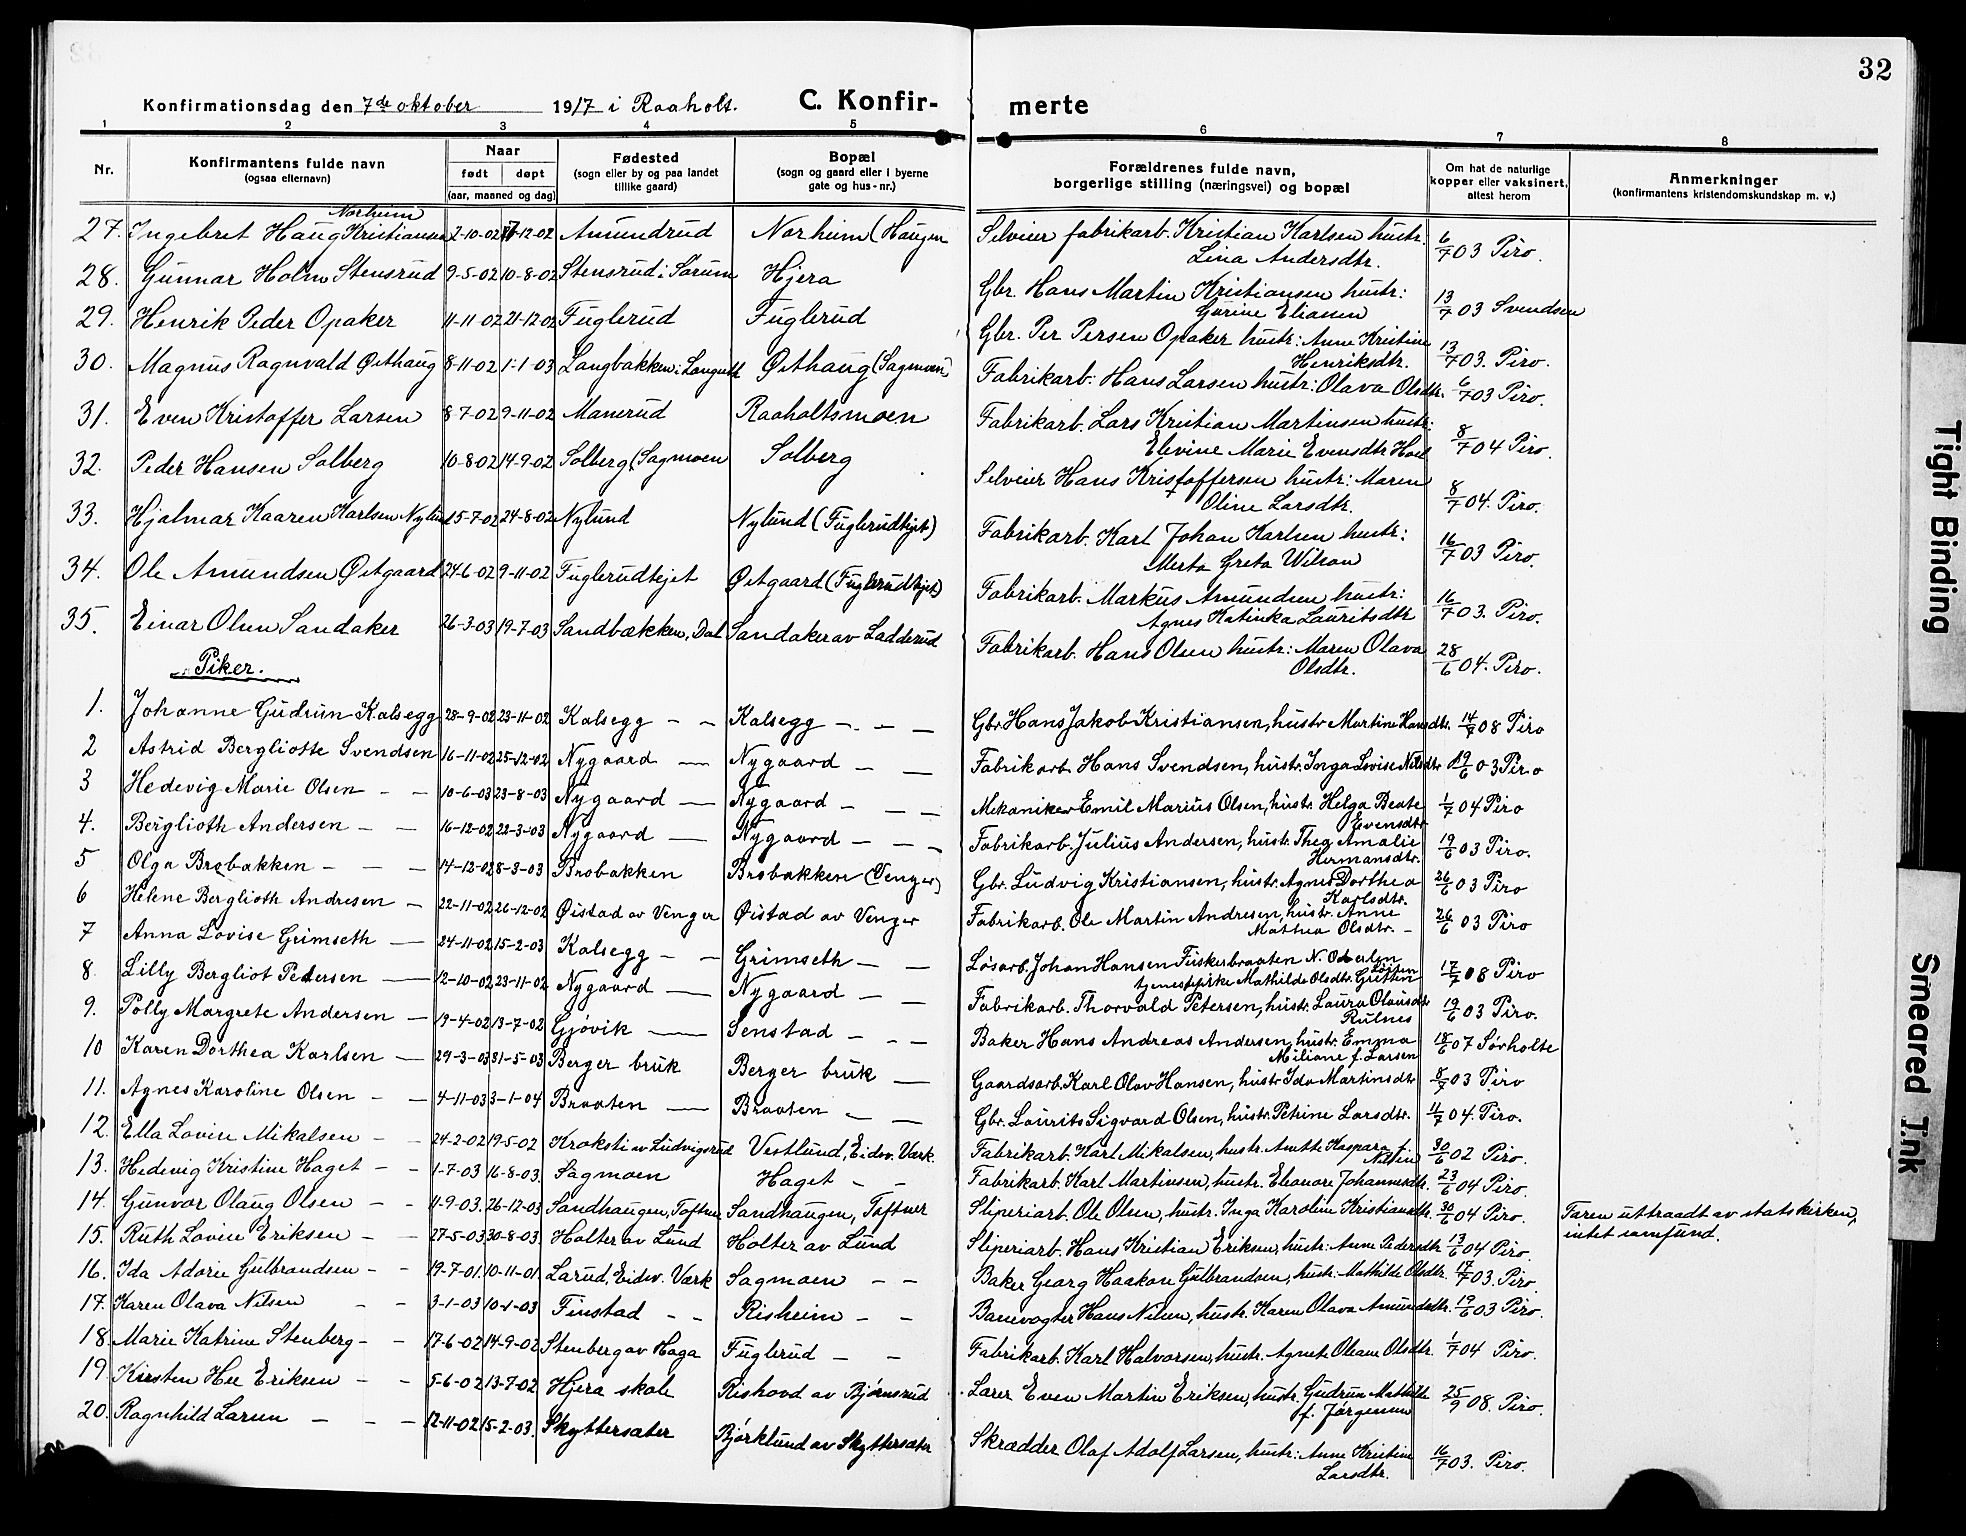 32
Konfirmationsdag den 7de oktober 1917 i Raaholt. C. Konfir- merte
1 2 3 4 5 6 7 8
Nr. Konfirmantens fulde navn (ogsaa efternavn) Naar født døpt (aar, maaned og dag) Fødested (sogn eller by og paa landet tillike gaard) Bopæl (sogn og gaard eller i byerne gate og hus-nr.) Forældrenes fulde navn, borgerlige stilling (næringsvei) og bopæl Om hat de naturlige kopper eller vaksinert, attest herom Anmerkninger (konfirmantens kristendomskundskap m. v.)
Norheim
27. Ingebret Haug Kristiansen 2-10-02 7-12-02 Amundrud Norheim (Haugen Selveier fabrikarb. Kristian Karlsen hustr. Lina Andersdtr. 6/7 03 Piro.
28. Gunnar Holm Stensrud 9-5-02 10-8-02 Stensrud i Sørum Hjera Gbr. Hans Martin Kristiansen hustr: Gurine Eliassen 13/7 03 Svendsen
29. Henrik Peder Opaker 11-11-02 21-12-02 Fuglerud Fuglerud Gbr. Per Persen Opaker hustr: Anne Kristine Henriksdtr. 13/7 03. Piro.
30. Magnus Ragnvald Østhaug 8-11-02 1-1-03 Langbakken i Langseth Østhaug (Sagmoen) Fabrikarb: Hans Larsen hustr: Olava Olsdtr. 6/7 03 Piro.
31. Even Kristoffer Larsen 8-7-02 9-11-02 Manerud Raaholtsmoen Fabrikarb. Lars Kristian Martinsen hustr: Elevine Marie Evensdtr Hoel 8/7 04 Piro.
32. Peder Hansen Solberg 10-8-02 14-9-02 Solberg (Sagmoen Solberg Selveier Hans Kristoffersen hustr: Maren Oline Larsdtr. 8/7 04. Piro.
33. Hjalmar Kaaren Karlsen Nylund 15-7-02 24-8-02 Nylund Nylund (Fuglerudkjet) Fabrikarb. Karl Johan Karlsen hustr: Merta Greta Wilson 16/7 03 Piro.
34. Ole Amundsen Østgaard 24-6-02 9-11-02 Fuglerudkjet Østgaard (Fuglerudkjet) Fabrikarb. Markus Amundsen hustr: Agnes Katinka Lauritsdtr 16/7 03. Piro.
35. Einar Olsen Sandaker 26-3-03 19-7-03 Sandbækken, Dal Sandaker av Ladderud Fabrikarb. Hans Olsen hustr: Maren Olava Olsdtr. 28/6 04. Piro.
Piker.
1. Johanne Gudrun Kalsegg 28-9-02 23-11-02 Kalsegg – – Kalsegg – – Gbr. Hans Jakob Kristiansen, hustr Martine Hansdtr. 14/9 08 Piro
2 Astrid Bergliotte Svendsen 16-11-02 25-12-02 Nygaard — Nygaard – – Fabrikarb. Hans Svendsen, hustr. Inga Lovise Nilsdtr 19/6 03 Piro
3 Hedevig Marie Olsen – – 10-6-03 23-8-03 Nygaard — Nygaard – – Mekaniker Emil Marius Olsen, hustr. Helga Beate Evensdtr 1/7 04 Piro
4. Berglioth Andersen – – 16-12-02 22-3-03 Nygaard — Nygaard – – Fabrikarb. Julius Andersen, hustr. Thea Amalie Hermansdtr. 19/6 03 Piro.
5 Olga Brobakken – – – 14-12-02 8-3-03 Brobakken Brobakken (Venger) Gbr. Ludvig Kristiansen, hustr. Agnes Dorthea Karlsdtr. 26/6 03 Piro
6 Helene Berglioth Andresen – 22-11-02 26-12-02 Øistad av Venger Øistad av Venger Fabrikarb. Ole Martin Andresen, hustr. Anne Mathea Olsdtr. – 26/6 03 Piro
7 Anna Lovise Grimseth — 24-11-02 15-2-03 Kalsegg – – Grimseth – – Løsarb. Johan Hansen Fiskerbraaten N. Odalen tjenestepike Mathilde Olsdtr. Gritten Løiten 17/7 08 Piro
8. Lilly Bergliot Petersen — 12-10-02 23-11-02 Nygaard — Nygaard – – Fabrikarb. Thorvald Petersen, hustr. Laura Olausdtr Rulnes 19/6 03 Piro.
9. Polly Margrete Andersen – 19-4-02 13-7-02 Gjøvik — Senstad – – – Baker Hans Andreas Andersen, hustr. Emma Miliane f. Larsen 18/6 07 Sørholte
10 Karen Dorthea Karlsen — 29-3-03 31-5-03 Berger bruk Berger bruk — Gaardsarb. Karl Olav Hansen, hustr Ida Martinsdtr 8/7 03 Piro
11. Agnes Karoline Olsen – – 4-11-03 3-1-04 Braaten — Braaten – – Gbr. Laurits Sigvard Olsen, hustr. Petrine Larsdtr. 11/7 04. Piro.
12. Ella Lovise Mikalsen – – 24-2-02 19-5-02 Kroksti av Ludvigsrud Vestlund, Eidsv. Værk. Fabrikarb. Karl Mikalsen, hustr. Anette Kaspara f. Nilsen 30/6 02 Piro.
13. Hedevig Kristine Haget – – 1-7-03 16-8-03. Sagmoen Haget – – Fabrikarb. Karl Martinsen, hustr. Eleonore Johannesdtr. 23/6 04 Piro.
14. Gunvor Olaug Olsen – – 11-9-03. 26-12-03 Sandhaugen, Toftner Sandhaugen, Toftner Sliperiarb. Ole Olsen, hustr. Inga Karoline Kristiansdtr 30/6 04 Piro. Faren uttraadt av statskirken, intet samfund.
15. Ruth Lovise Eriksen – – 27-5-03 30-8-03. Holter av Lund Holter av Lund Sliperiarb. Hans Kristian Eriksen, hustr: Anne Pedersdtr 13/6 04 Piro.
16. Ida Adorie Gulbrandsen – – 19-7-01. 10-11-01. Larud, Eidsv. Værk Sagmoen – – Baker Georg Haakon Gulbrandsen, hustr: Mathilde Olsdtr. 17/7 03. Piro.
17. Karen Olava Nilsen – – 3-1-03 10-4-03 Finstad – – Risheim – – Banevogter Hans Nilsen, hustr. Karen Olava Amundsdtr. 19/6 03 Piro.
18. Marie Katrine Stenberg – – 17-6-02 14-9-02 Stenberg av Haga Fuglerud – – Fabrikarb. Karl Halvorsen, hustr. Agnete Oleane Olsdtr. 1/7 04 Piro.
19. Kirsten Hee Eriksen – – 5-6-02 13-7-02 Hjera skole Rishovd av Bjørnsrud Lærer Even Martin Eriksen, hustr. Gudrun Mathilde f. Jørgensen 25/9 08. Piro.
20. Ragnhild Larsen – – – 12-11-02 15-2-03. Skyttersæter Bjørklund av Skyttersæter Skrædder Olaf Adolf Larsen, hustr: Anne Kristine Larsdtr. 16/7 03. Piro.
Tight Binding
Smeared Ink